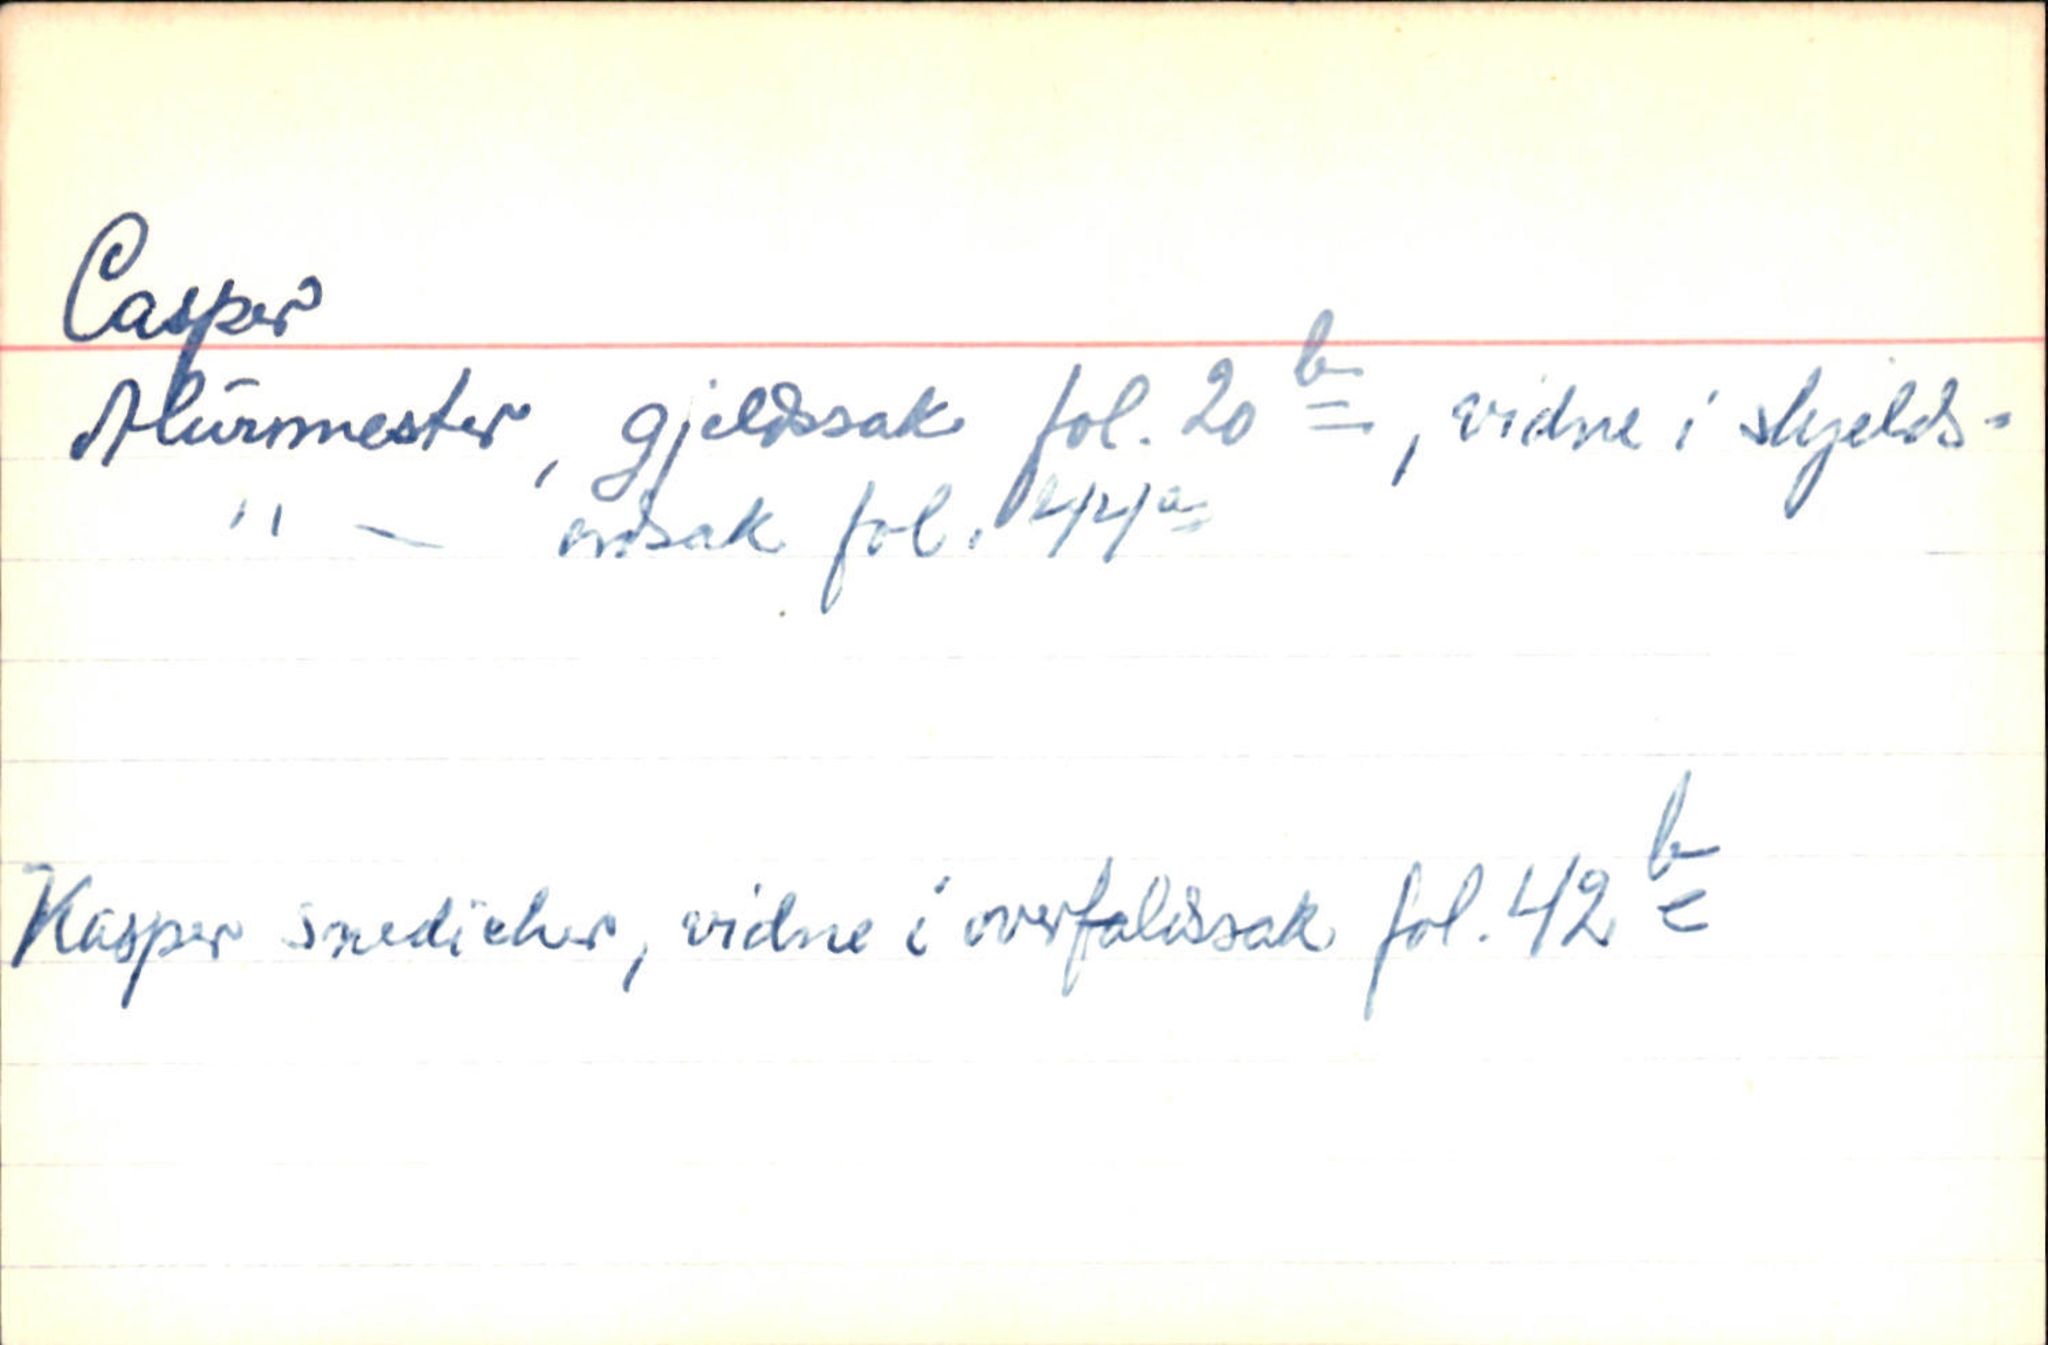 Casper
Mürmester, gjeldssak fol. 20 b, vidne i skjelds-
" — ordsak fol. 44a
Kasper snedicher, vidne i overfaldssak fol. 42 b